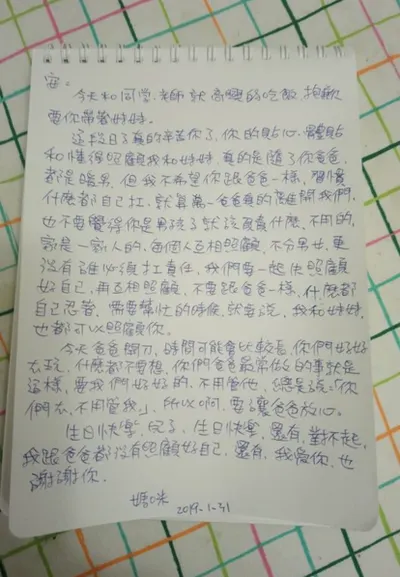 安:
今天和同學.老師就高興的吃飯,抱歉
要你帶著妹妹。
這段日子真的辛苦你了,你的貼心、體貼
和懂得照顧我和妹妹,真的是隨了你爸爸,
都是暖男,但我不希望你跟爸爸一樣,習慣
什麼都自己扛,就算萬一爸爸真的離開我們,
也不要覺得你是男孩子就該承擔什麼,不用的,
家是一家人的,每個人互相照顧,不分男女,更
沒有誰必須扛責任,我們要一起先照顧
好自己,再互相照顧,不要跟爸爸一樣,什麼都
自己忍著,需要幫忙的時候,就要說,我和妹妹
也都可以照顧你。
今天爸爸開刀,時間可能會比較長,你們好好
去玩,什麼都不要想,你們爸爸最常做的事就是
這樣,要我們好好的,不用管他,總是說:「你
們去,不用管我」,所以啊,要讓爸爸放心。
生日快樂,兒子,生日快樂,還有,對不起,
我跟爸爸都沒有照顧好自己,還有,我愛你,也
謝謝你.
媽咪
2019.1.31